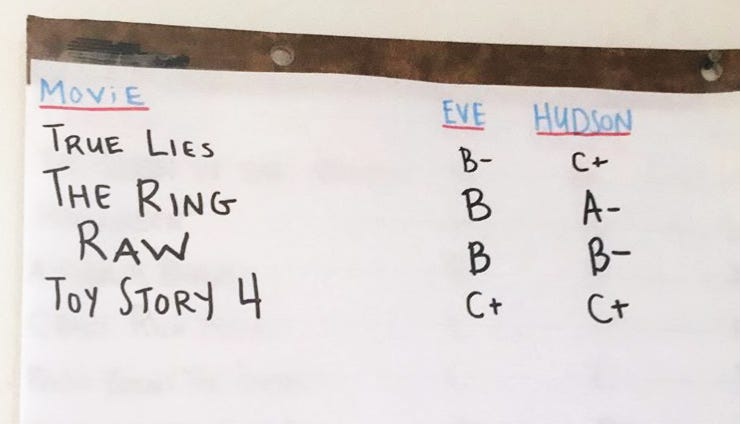 MOVIE EVE HUDSON
TRUE LIES B- C+
THE RING B A-
RAW B B-
TOY STORY 4 C+ C+